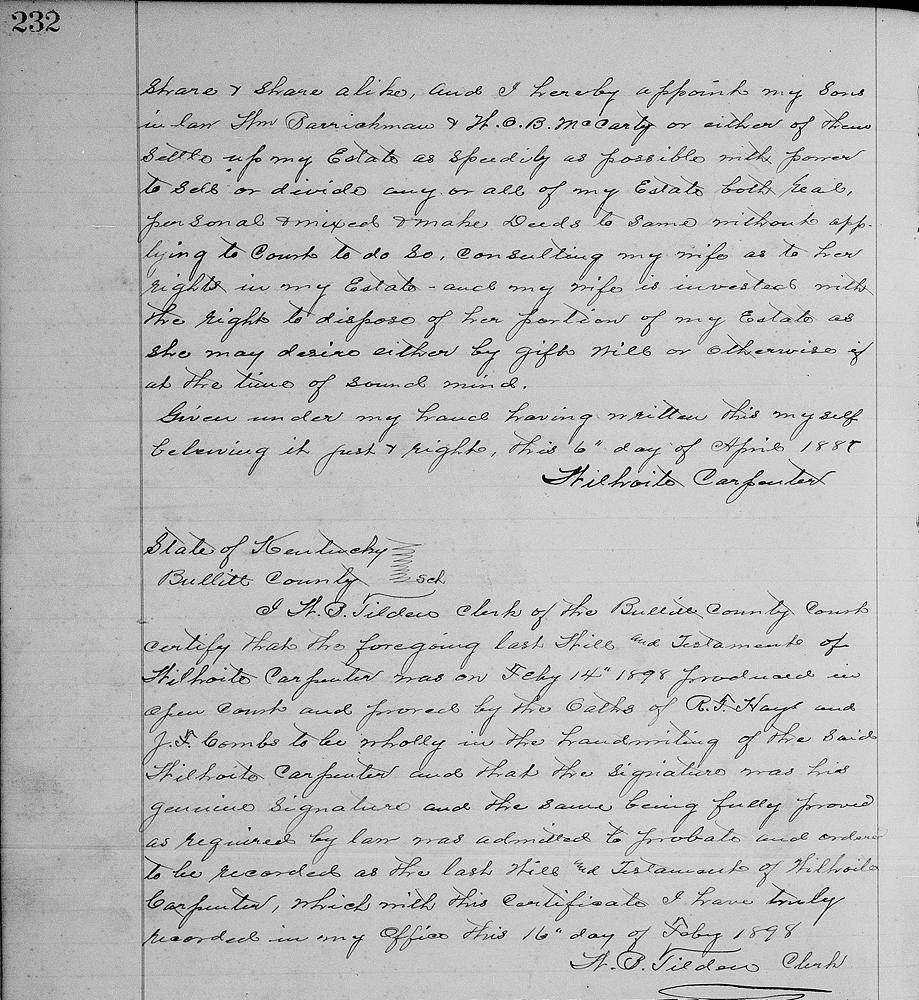 232
share & share alike, and I hereby appoint my Sons
in law Wm Parrichman & W. C. B. McCarty or either of them
settle up my Estate as speedily as possible with power
to sell or divide any or all of my Estate both real,
personal & mixed & make Deeds to same without app-
lying to Court to do so, consulting my wife as to her
rights in my Estate - and my wife is invested with
the right to dispose of her portion of my Estate as
she may desire either by gift will or otherwise if
at the time of sound mind.
Given under my hand having written this myself
beleiving it just & right, this 6" day of April
Wilhoite Carpenter
State of Kentucky
Bullitt County Sct
I W. B. Tilden Clerk of the Bullitt County Court
certify that the foregoing last Will and Testament of
Wilhoite Carpenter was on Feby 14" 1898 produced in
open Court and proved by the Oaths of R. F. Hays and
J. F. Combs to be wholly in the handwriting of the said
Wilhoite Carpenter and that the signature was his
genuine signature and the same being fully proved
as required by law was admitted to probate and ordered
to be recorded as the last Will and Testament of Wilhoite
Carpenter, which with this Certificate I have truly
recorded in my Office this 16" day of Feby 1898
W. B. Tilden Clerk